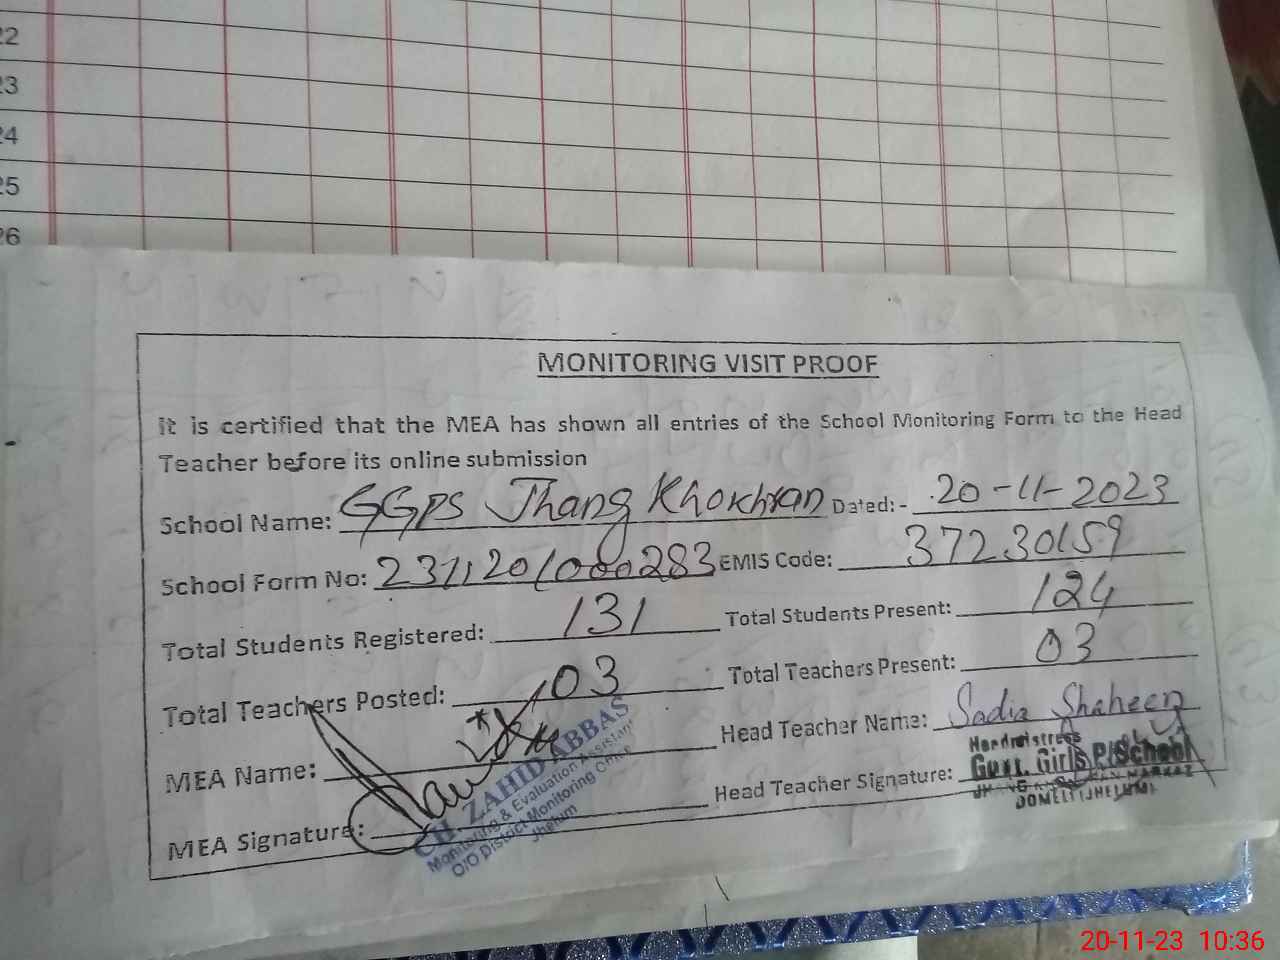 22
23
24
25
26
MONITORING VISIT PROOF
It is certified that the MEA has shown all entries of the School Monitoring Form to the Head
Teacher before its online submission
School Name: GGPS Jhang Khokhran Dated:- 20-11-2023
School Form No: 231120/000283 EMIS Code: 37230159
Total Students Registered: 131 Total Students Present: 124
Total Teachers Posted: 03 Total Teachers Present: 03
MEA Name: Head Teacher Name: Sadia Shaheen
MEA Signature: Head Teacher Signature:
CH. ZAHID ABBAS
Monitoring & Evaluation Assistant
O/O District Monitoring Office
Jhelum
Headmistress
Govt. Girls P/School
DOMELI (JHELUM)
20-11-23 10:36